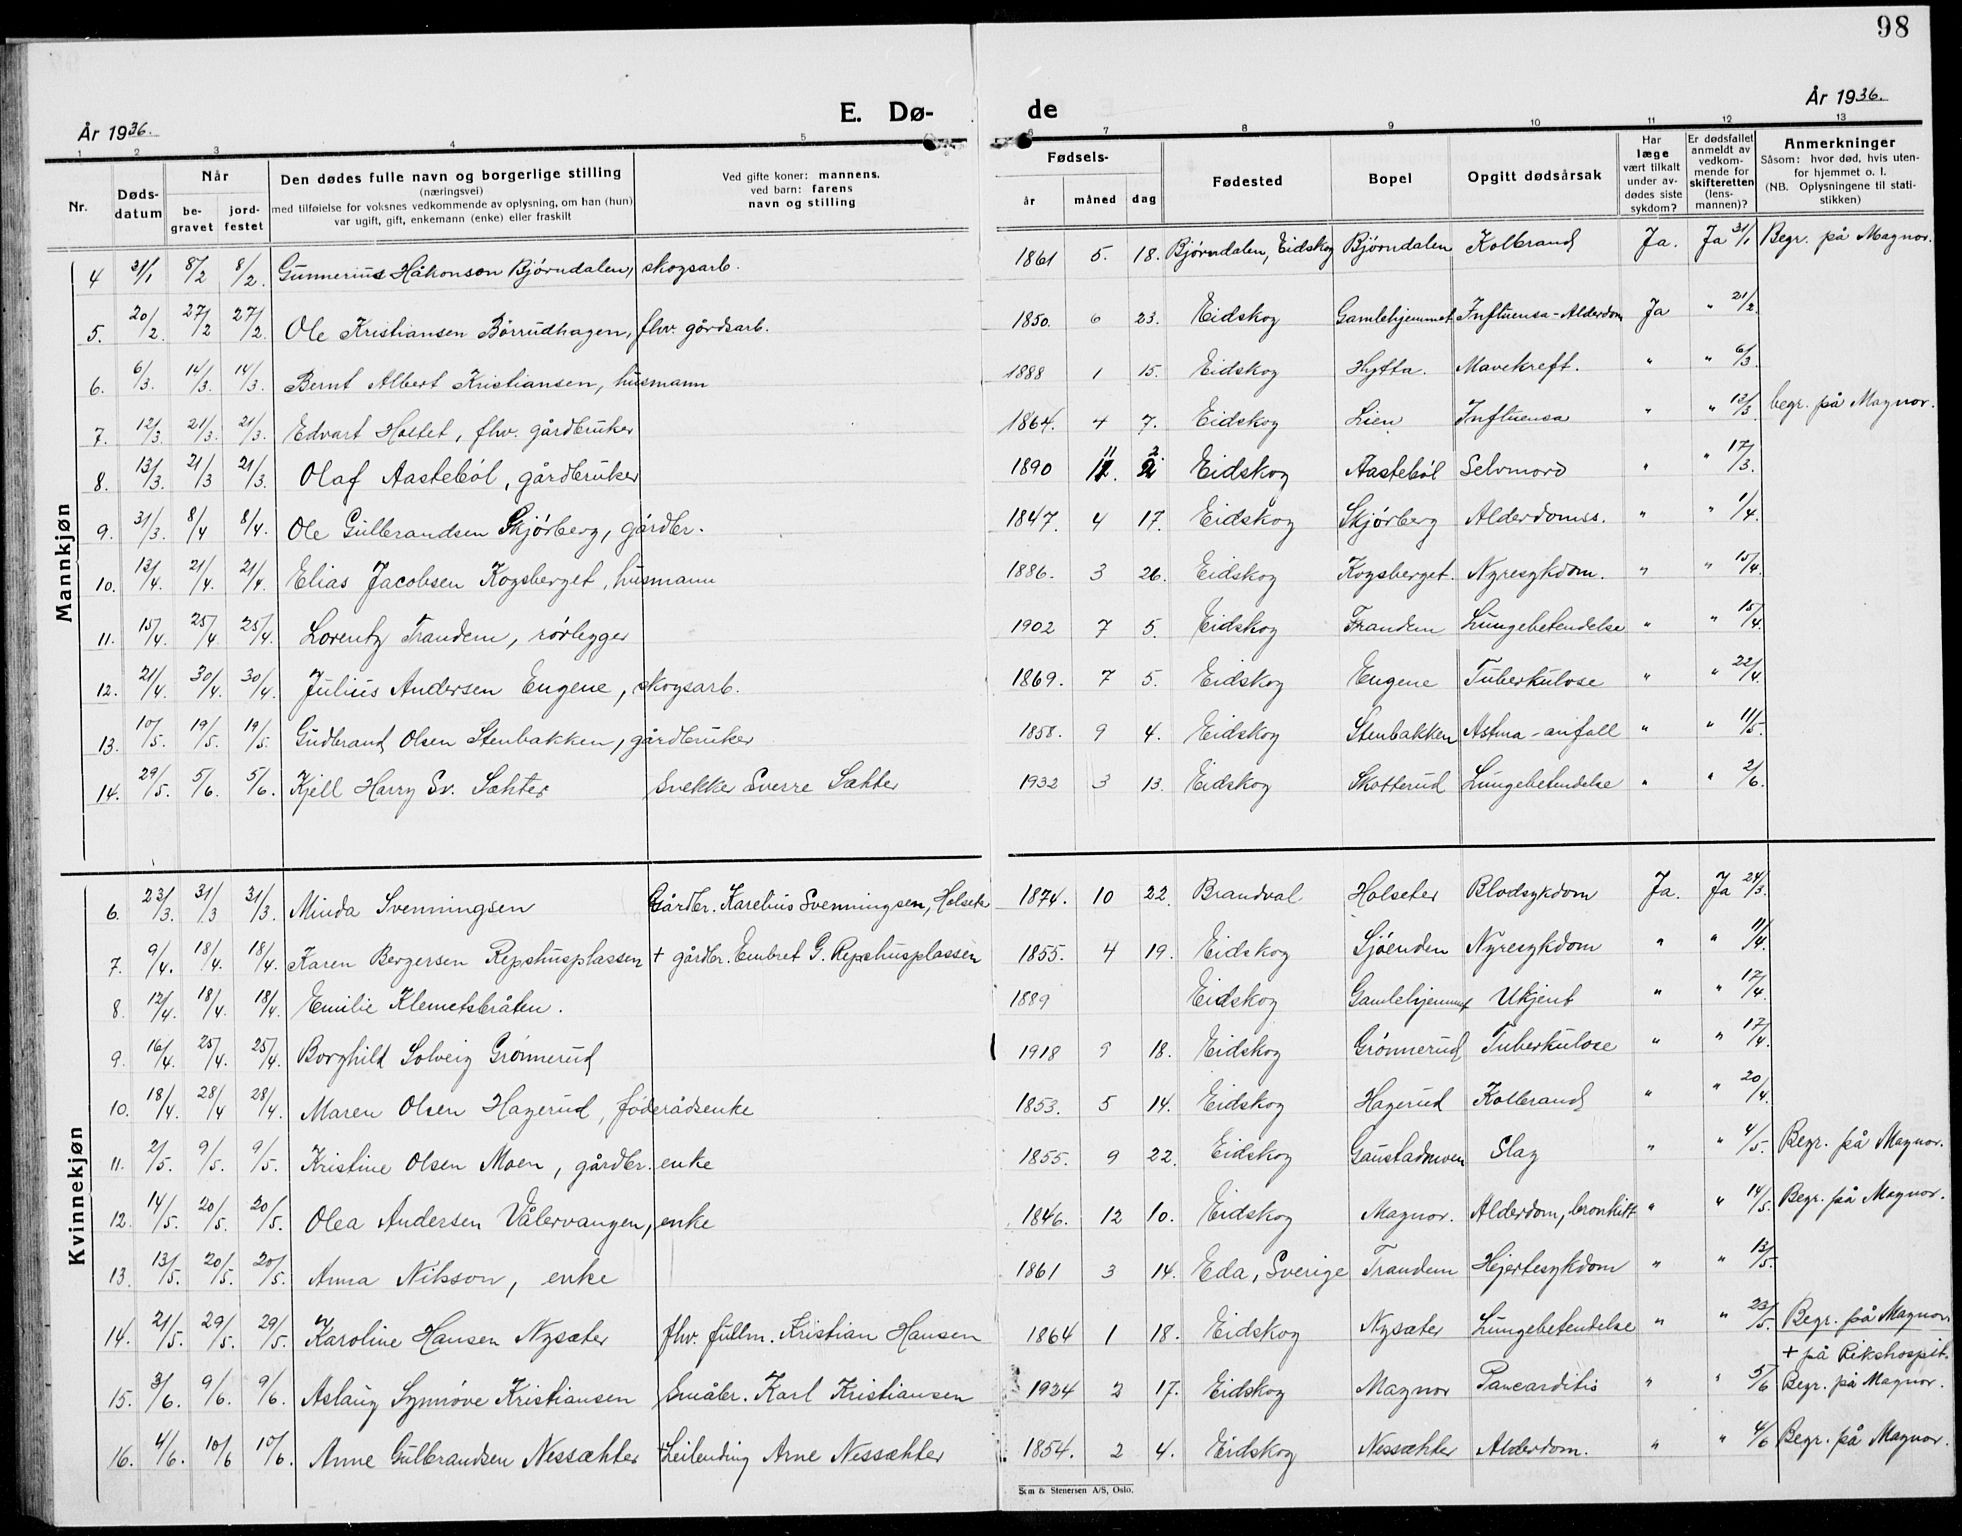 98
År 1936.
E. Dø-
de
År 1936.
1 2 3 4 5 6 7 8 9 10 11 12 13
Nr.
Døds-
datum
Når
be-
gravet
jord-
festet
Den dødes fulle navn og borgerlige stilling
(næringsvei)
med tilføielse for voksnes vedkommende av oplysning, om han (hun)
var ugift, gift, enkemann (enke) eller fraskilt
Ved gifte koner: mannens,
ved barn: farens
navn og stilling
Fødsels-
år måned dag
Fødested
Bopel
Opgitt dødsårsak
Har
læge
vært tilkalt
under av-
dødes siste
sykdom?
Er dødsfallet
anmeldt av
vedkom-
mende for
skifteretten
(lens-
mannen)?
Anmerkninger
Såsom: hvor død, hvis uten-
for hjemmet o. l.
(NB. Oplysningene til stati-
stikken)
Mannkjøn
4 31/1 8/2 8/2. Gunnerius Håkonson Bjørndalen, skogsarb. 1861 5. 18. Bjørndalen, Eidskog Bjørndalen Kolbrand Ja. Ja 31/1 Begr. på Magnor.
5. 20/2. 27/2 27/2. Ole Kristiansen Børrudhagen, fhv. gårdsarb. 1850. 6 23. Eidskog Gamlehjemmet Influensa-Alderdom Ja " 21/2.
6. 6/3. 14/3. 14/3. Bernt Albert Kristiansen, husmann 1888 1 15. Eidskog Hytta. Mavekreft. " " 6/3.
7. 12/3. 21/3. 21/3. Edvart Hostet, fhv. gårdbruker 1864. 4 7. Eidskog Lien Influensa " " 13/3 begr. på Magnor.
8. 13/3. 21/3 21/3. Olaf Aastebøl, gårdbruker 1890 11 2. Eidskog Aastebøl Selvmord " " 17/3.
9. 31/3. 8/4 8/4. Ole Gulbrandsen Skjørberg, gårdbr. 1847. 4 17. Eidskog Skjørberg Alderdomss. " " 1/4.
10. 13/4. 21/4. 21/4. Elias Jacobsen Kogsberget, husmann 1886. 3 26. Eidskog Kogsberget. Nyresykdom. " " 15/4.
11. 15/4. 25/4. 25/4. Lorentz Trandem, rørlegger 1902 7 5. Eidskog Trandem Lungebetendelse " " 15/4.
12. 21/4. 30/4. 30/4. Julius Andersen Eugene, skogsarb. 1869. 7 5. Eidskog Eugene Tuberkulose " " 22/4.
13. 10/5. 19/5. 19/5. Gudbrand Olsen Stenbakken, gårdbruker 1858. 9 4. Eidskog Stenbakken Astma-anfall " " 11/5.
14. 29/5. 5/6. 5/6. Kjell Harry Sv. Sæhter Snekker Sverre Sæhter 1932 3 13. Eidskog Skotterud Lungebetendelse " " 2/6.
Kvinnekjøn
6. 23/3. 31/3 31/3. Minda Svenningsen Gårdbr. Karelius Svenningsen, Holseter 1874. 10 22. Brandval Holseter Blodsykdom Ja. Ja 24/3.
7. 9/4. 18/4. 18/4. Karen Bergersen Repshusplassen + gårdbr. Embret G. Repshusplassen 1855. 4 19. Eidskog Sjøenden Nyresykdom " " 11/4.
8. 12/4. 18/4. 18/4. Emilie Klemetsbråten. 1889 Eidskog Gamlehjemmet Ukjent " " 17/4.
9. 16/4. 25/4. 25/4. Borghild Solveig Grønnerud 1918 9 18. Eidskog Grønnerud Tuberkulose " " 17/4.
10. 18/4. 28/4 28/4. Maren Olsen Hagerud, føderådsenke 1853. 5 14. Eidskog Hagerud Kolbrand " " 20/4.
11. 2/5. 9/5. 9/5. Kristine Olsen Moen, gårdbr. enke 1855. 9 22. Eidskog Gaustadmoen Slag " " 4/5. Begr. på Magnor.
12. 14/5. 20/5. 20/5. Olea Andersen Vålervangen, enke 1846. 12 10. Eidskog Magnor. Alderdom, bronkitt " " 14/5. Begr. på Magnor.
13. 13/5. 20/5. 20/5. Anna Nilsson, enke 1861 3 14. Eda, Sverige Trandem Hjertesykdom " " 13/5.
14. 21/5. 29/5. 29/5. Karoline Hansen Nysæter fhv. fullm. Kristian Hansen 1864 1 18. Eidskog Nysæter Lungebetendelse " " 23/5. Begr. på Magnor
+ på Rikshospit.
15. 3/6. 9/6. 9/6. Aslaug Synnøve Kristiansen Småbr. Karl Kristiansen 1924 2 17. Eidskog Magnor Pancarditis " " 5/6 Begr. på Magnor.
16. 4/6. 10/6 10/6. Anne Gulbrandsen Nessæhter + Leilending Arne Nessæhter 1854. 2 4. Eidskog Nessæhter Alderdom. " " 4/6 Begr. på Magnor.
Sem & Stenersen A/S, Oslo.